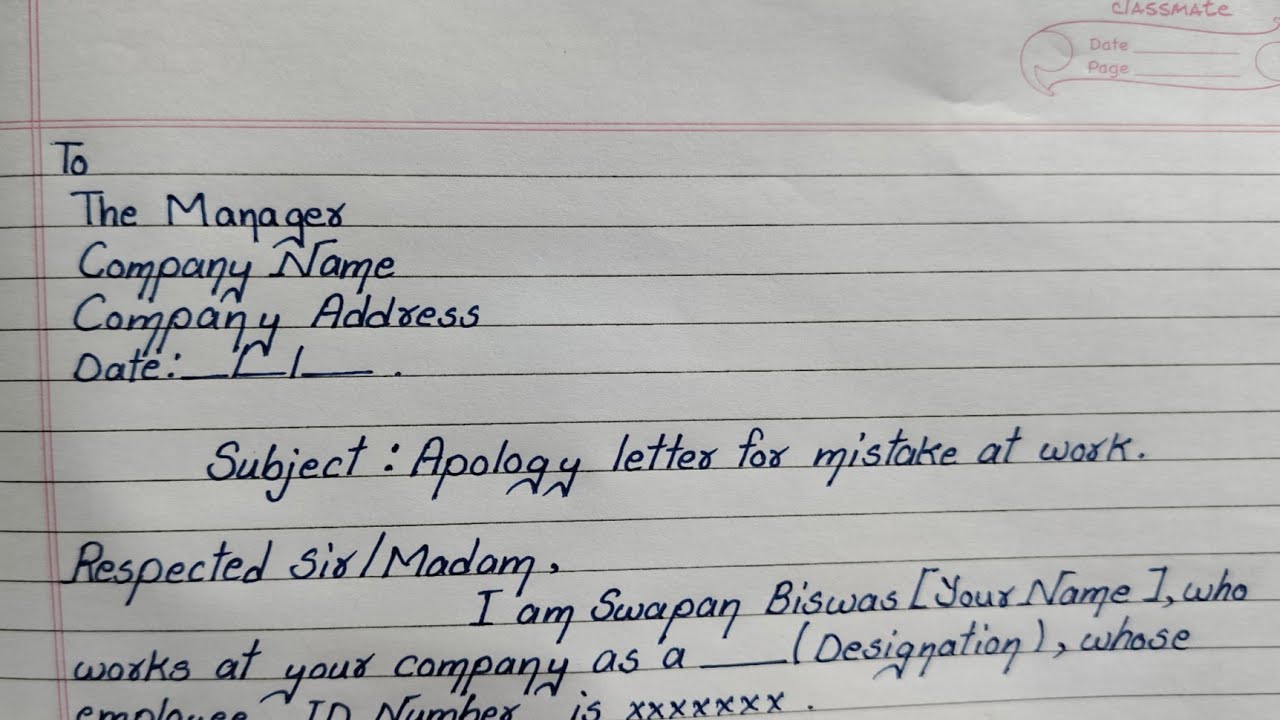 classmate
Date
Page
To
The Manager
Company Name
Company Address
Date:__/__/___.
Subject: Apology letter for mistake at work.
Respected Sir/Madam,
I am Swapan Biswas [Your Name], who
works at your company as a ___(Designation), whose
employee ID Number is xxxxxxx.